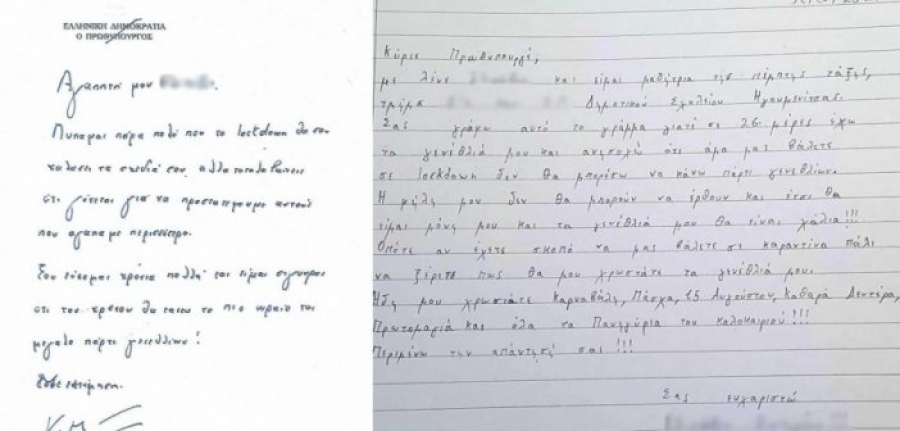 ΕΛΛΗΝΙΚΗ ΔΗΜΟΚΡΑΤΙΑ
Ο ΠΡΩΘΥΠΟΥΡΓΟΣ
Αγαπητή μου
Λυπαμαι παρα πολύ που το lockdown θα σου
χαλαση τα σχέδιά σου, αλλα καταλαβαινεις
οτι γίνεται για να προστατεψουμε αυτους
που αγαπαμε περισσοτερο.
Σου ευχομαι χρόνια πολλά και είμαι σιγουρος
οτι του χρονου θα κανεις το πιο ωραιο και
μεγαλο πάρτι γενεθλίων!
Με εκτίμηση.
Κ.Μ
Κύριε Πρωθυπουργέ,
με λένε και είμαι μαθήτρια της πέμπτης τάξης,
τμήμα Δημοτικού Σχολείου Ηγουμενίτσας.
Σας γράφω αυτό το γράμμα γιατί σε 26 μέρες έχω
τα γενέθλιά μου και ανησυχώ ότι άμα μας βάλετε
σε lockdown δεν θα μπορέσω να κάνω πάρτι γενεθλίων.
Η φίλη μου δεν θα μπορούν να έρθουν και έτσι θα
είμαι μόνη μου και τα γενέθλιά μου θα είναι χάλια!!!
Οπότε αν έχετε σκοπό να μας βάλετε σε καραντίνα πάλι
να ξέρετε πως θα μου χρωστάτε τα γενέθλιά μου.
Ήδη μου χρωστάτε Καρναβάλι, Πάσχα, 15 Αυγούστου, Καθαρά Δευτέρα,
Πρωτομαγιά και όλα τα Πανηγύρια του καλοκαιριού!!!
Περιμένω την απάντησή σας!!!
Σας ευχαριστώ